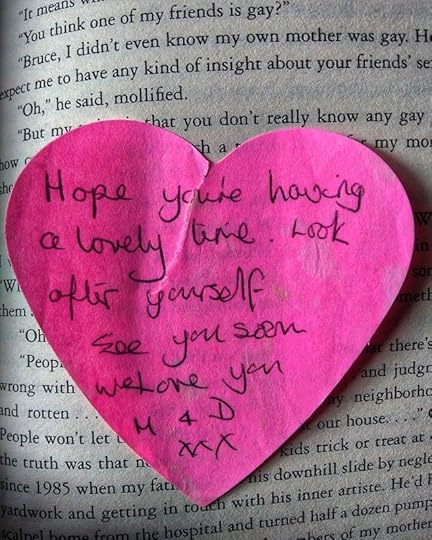 "It means
"You think one of my friends is gay?"
"Bruce, I didn't even know my own mother was gay. He
expect me to have any kind of insight about your friends' se
"Oh," he said, mollified.
"But my that you don't really know any gay
how ch a my mo
sh
Hope you're having
a lovely time. Look
after yourself
See you soon
we Love you
M & D
xxx
W
I w
"Wh
them meth
"Oh there's
"Peop and judgm
wrong with neighborho
and rotten . . . . our house. . . ."
People won't let kids trick or treat at
the truth was that n his downhill slide by negle
since 1985 when my fat
yardwork and getting in touch with his inner artiste. He'd
scalpel home from the hospital and turned half a dozen pump
bers of my mother